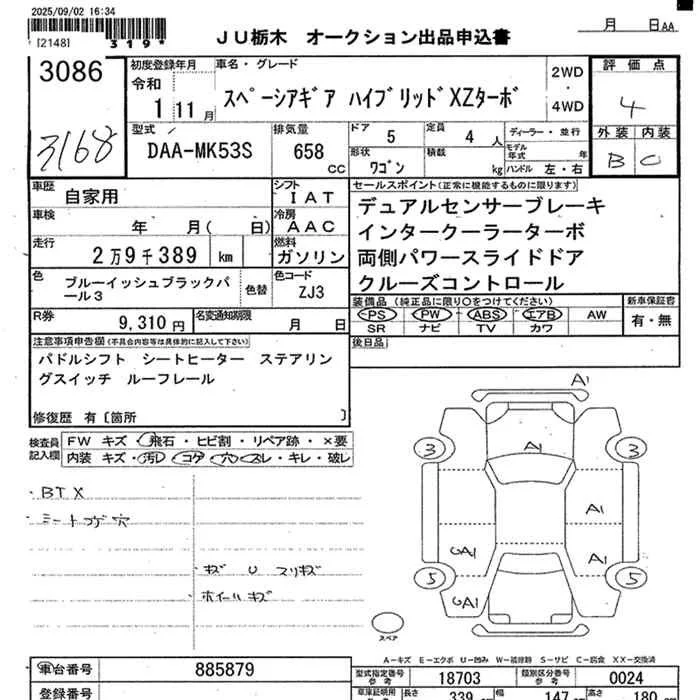 2025/09/02 16:34
[2148] 319*
JU栃木 オークション出品申込書
月 日 AA
3086
3168
初度登録年月
令和
1 11月
車名・グレード
スペーシアギア ハイブリッドXZターボ
2WD
・
4WD
評価点
4
外装 内装
B C
型式
DAA-MK53S
排気量
658
CC
ドア
5
定員
4 人
形状
ワゴン
積載
kg
ディーラー・並行
モデル年式 年
ハンドル 左・右
車歴
自家用
シフト
IAT
車検
年 月( 日)
冷房
AAC
走行
2万9千389 km
燃料
ガソリン
色
ブルーイッシュブラックパ
ール3
色替
色コード
ZJ3
R券
9,310円
名変通知期限
月 日
セールスポイント(正常に機能するものに限ります)
デュアルセンサーブレーキ
インタークーラーターボ
両側パワースライドドア
クルーズコントロール
装備品(純正品に限り○をつけてください)
PS PW ABS エアB AW
SR ナビ TV カワ
新車保証書
有・無
後日品
注意事項申告欄(不具合内容等は具体的に記入して下さい)
パドルシフト シートヒーター ステアリン
グスイッチ ルーフレール
修復歴 有〔箇所 〕
検査員
記入欄
FW キズ・飛石・ヒビ割・リペア跡・×要
内装 キズ・汚レ・コゲ・穴・スレ・キレ・破レ
・BTX
・シートコゲ穴
・キズ U スリキズ
ホイールキズ
A1
A1
3
3
A1
A1
UA1
5
5
UA1
スペア
A-キズ E-エクボ U-凹ミ W-補修跡 S-サビ C-腐食 XX-交換済
車台番号
885879
登録番号
型式指定番号
参考
18703
類別区分番号
参考
0024
車庫証明用
参考
長さ
339
幅
147
高さ
180